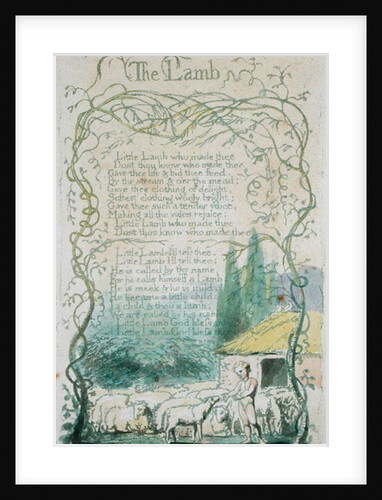 The Lamb
Little Lamb who made thee
Dost thou know who made thee
Gave thee life & bid thee feed.
By the stream & o'er the mead;
Gave thee clothing of delight,
Softest clothing wooly bright;
Gave thee such a tender voice,
Making all the vales rejoice:
Little Lamb who made thee
Dost thou know who made thee
Little Lamb I'll tell thee,
Little Lamb I'll tell thee;
He is called by thy name,
For he calls himself a Lamb:
He is meek & he is mild,
He became a little child:
I a child & thou a lamb,
We are called by his name.
Little Lamb God bless
Little Lamb God bless